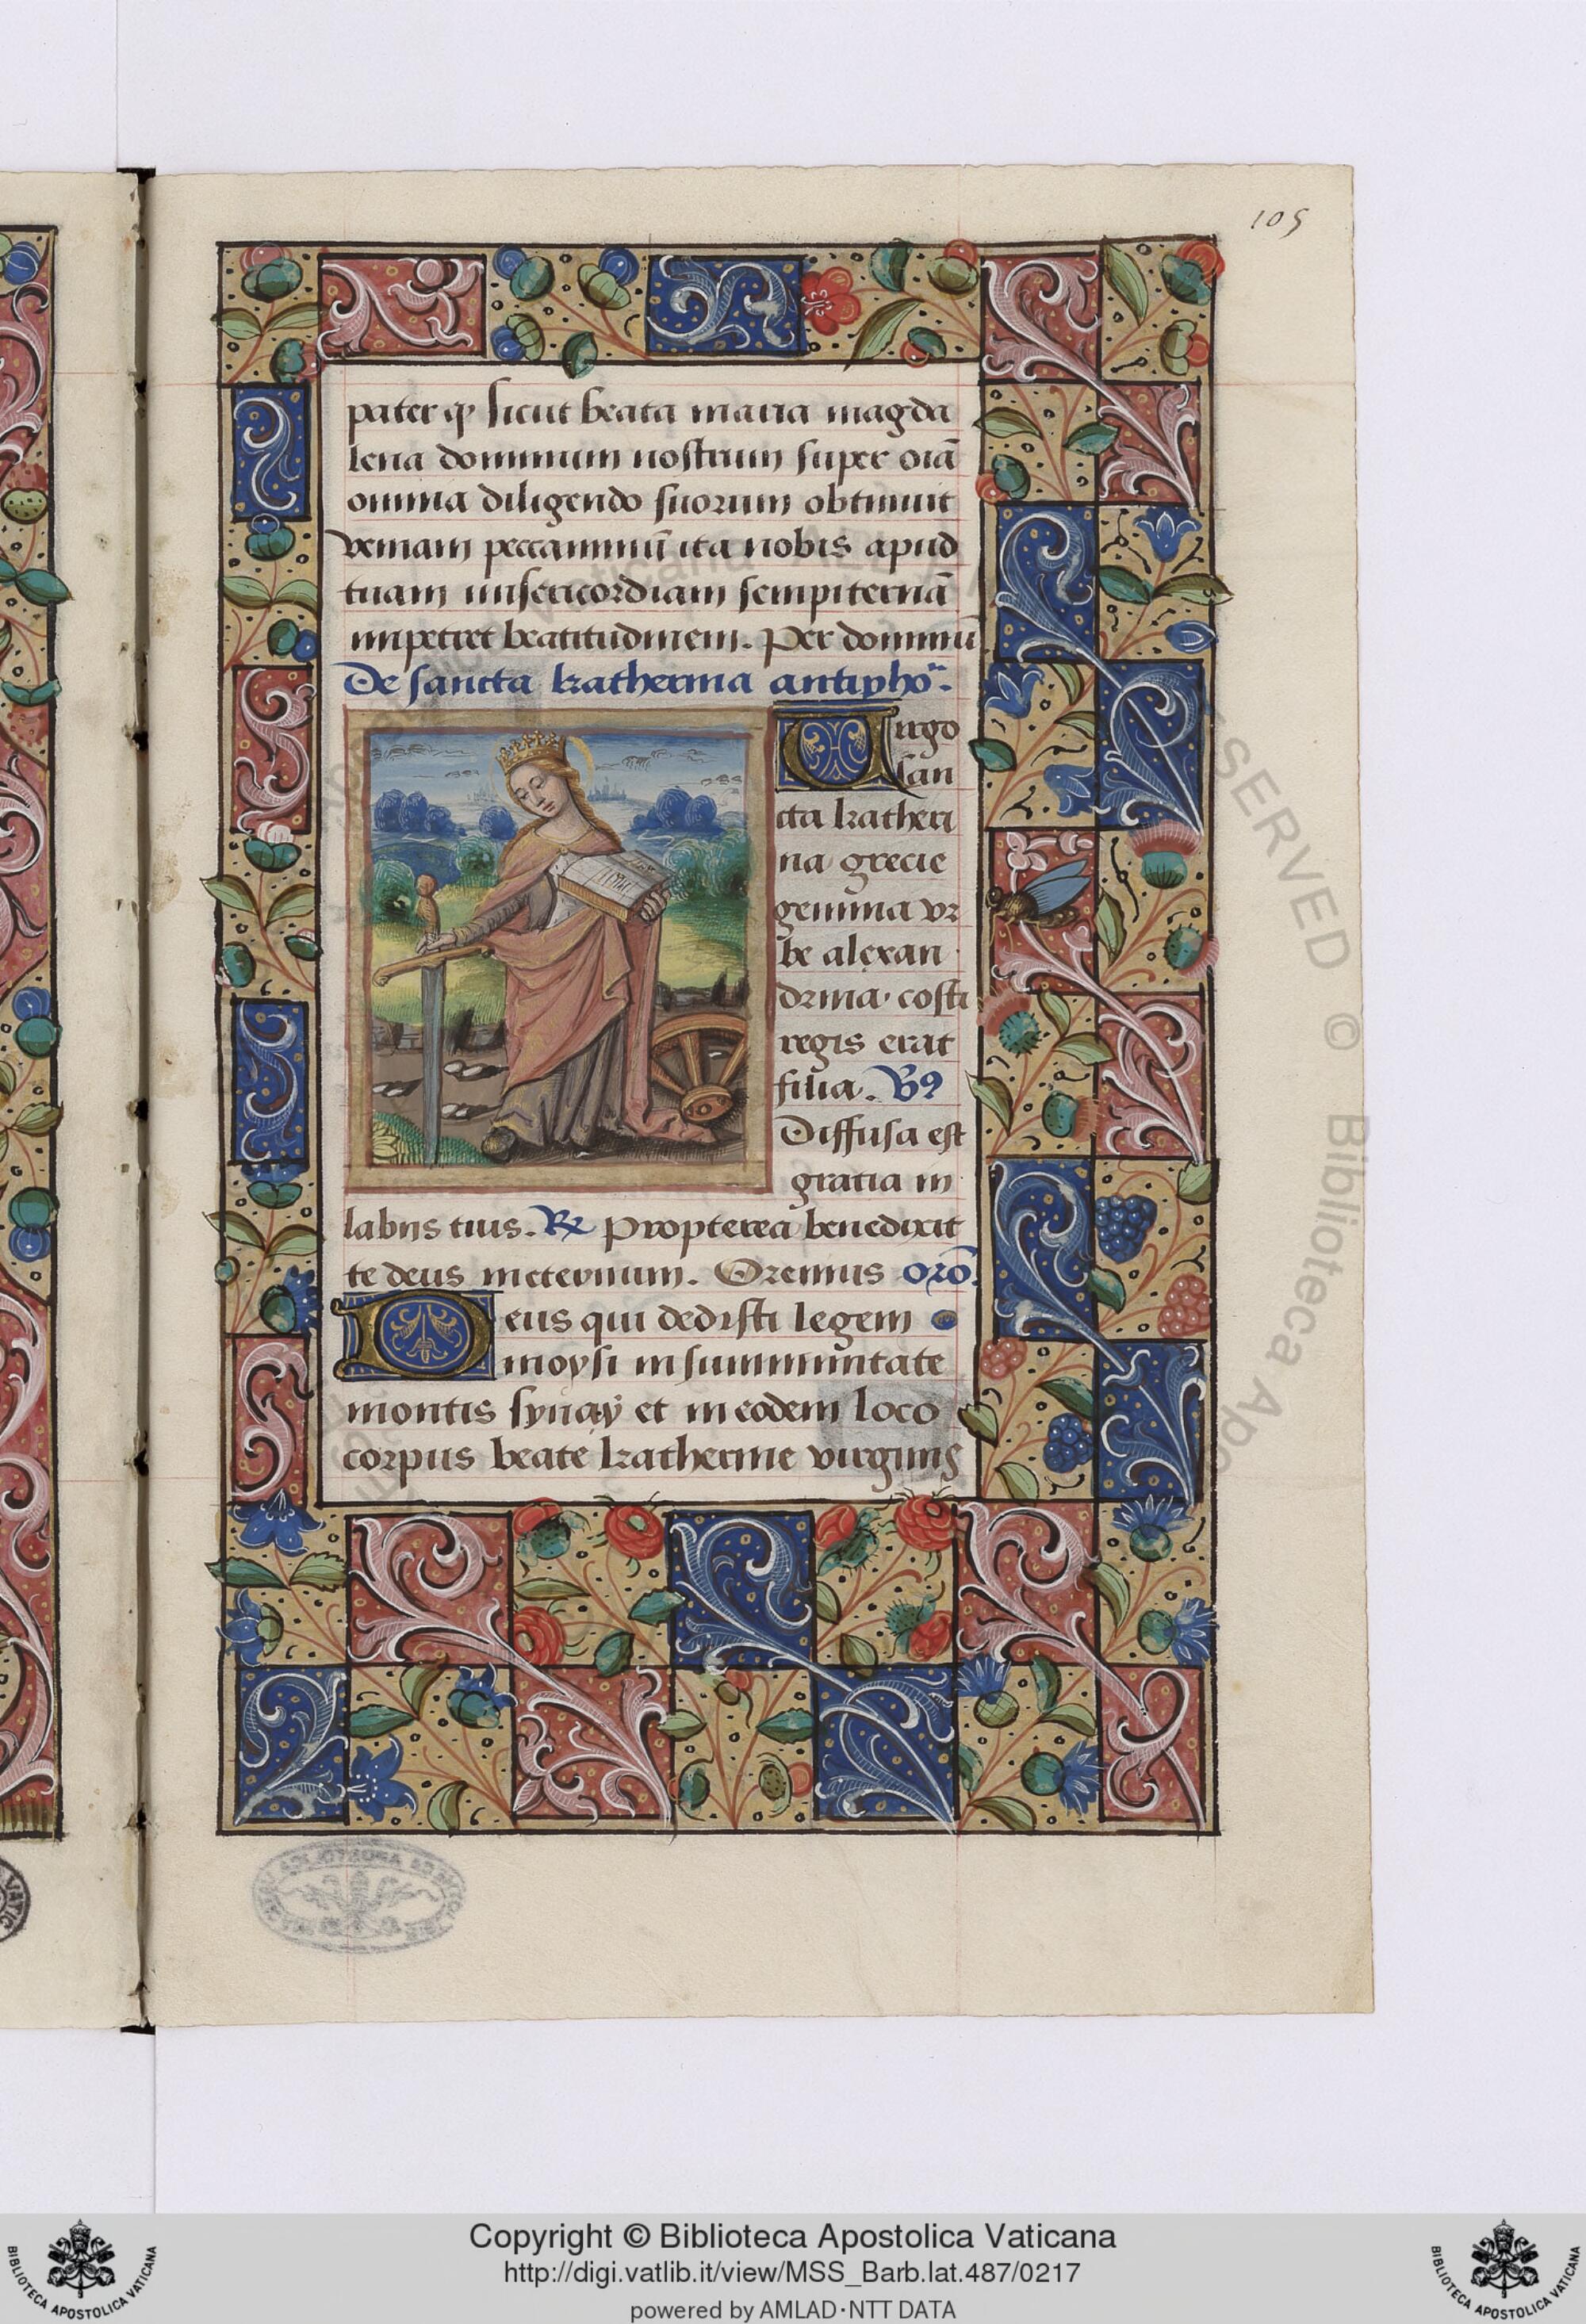 105
pater ꝙ sicut beata maria magda
lena dominum nostrum super oīa
omnia diligendo suorum obtinuit
veniam peccaminū ita nobis apud
tuam misericordiam sempiternā
impetret beatitudinem. Per dominū
De sancta katherina antipho.
Virgo
san
cta katheri
na grecie
gemma vr
be alexan
drina. costi
regis erat
filia. V9
Diffusa est
gratia in
labiis tuis. R Propterea benedixit
te deus ineternum. Oremus orō.
Deus qui dedisti legem
moysi in summitate
montis synaÿ et in eodem loco
corpus beate katherine virginis
Copyright © Biblioteca Apostolica Vaticana
http://digi.vatlib.it/view/MSS_Barb.lat.487/0217
powered by AMLAD·NTT DATA
BIBLIOTECA APOSTOLICA VATICANA
BIBLIOTECA APOSTOLICA VATICANA